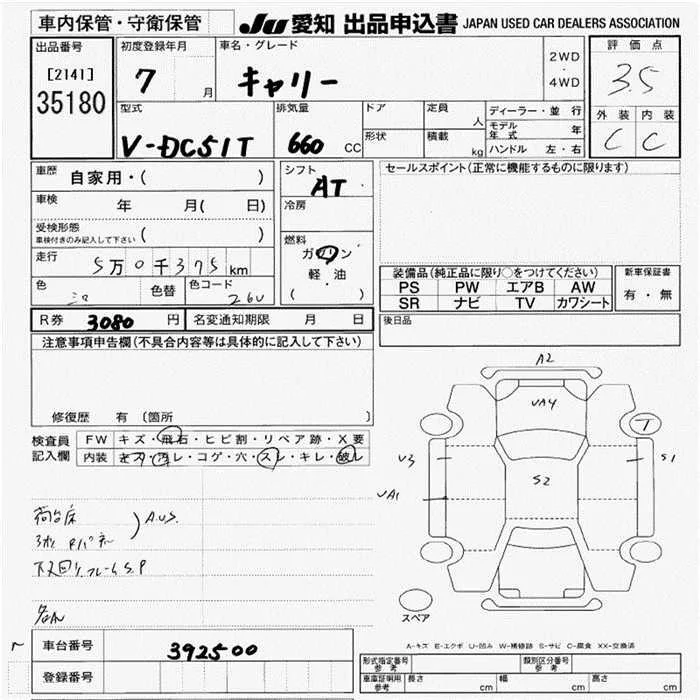 車内保管・守衛保管
JU 愛知 出品申込書 JAPAN USED CAR DEALERS ASSOCIATION
出品番号
[2141]
35180
初度登録年月
7 月
車名・グレード
キャリー
2WD
・
4WD
評価点
3.5
外装 内装
C C
型式
V-DC51T
排気量
660 CC
ドア
形状
定員 人
積載 kg
ディーラー・並行
モデル年式 年
ハンドル 左・右
車歴 自家用・( )
車検 年 月( 日)
受検形態
車検付きのみ記入して下さい ( )
走行 5万0千375km
色 シロ 色替
色コード 26U
シフト
AT
冷房
燃料
ガソリン
軽・油
( )
セールスポイント(正常に機能するものに限ります)
装備品(純正品に限り○をつけてください)
PS PW エアB AW
SR ナビ TV カワシート
新車保証書
有・無
R券 3080 円 名変通知期限 月 日
後日品
注意事項申告欄(不具合内容等は具体的に記入して下さい)
修復歴 有 [箇所 ]
検査員
記入欄
FW キズ・飛石・ヒビ割・リペア跡・X要
内装 キズ・汚レ・コゲ・穴・スレ・キレ・破レ
荷台床
A.U.S.
S.P
A2
UA4
T
U3
S1
S2
UA1
スペア
A-キズ E-エクボ U-凹み W-補修跡 S-サビ C-腐食 XX-交換済
車台番号 392500
登録番号
形式指定番号
参考
類別区分番号
参考
車庫証明用
参考
長さ cm 幅 cm 高さ cm